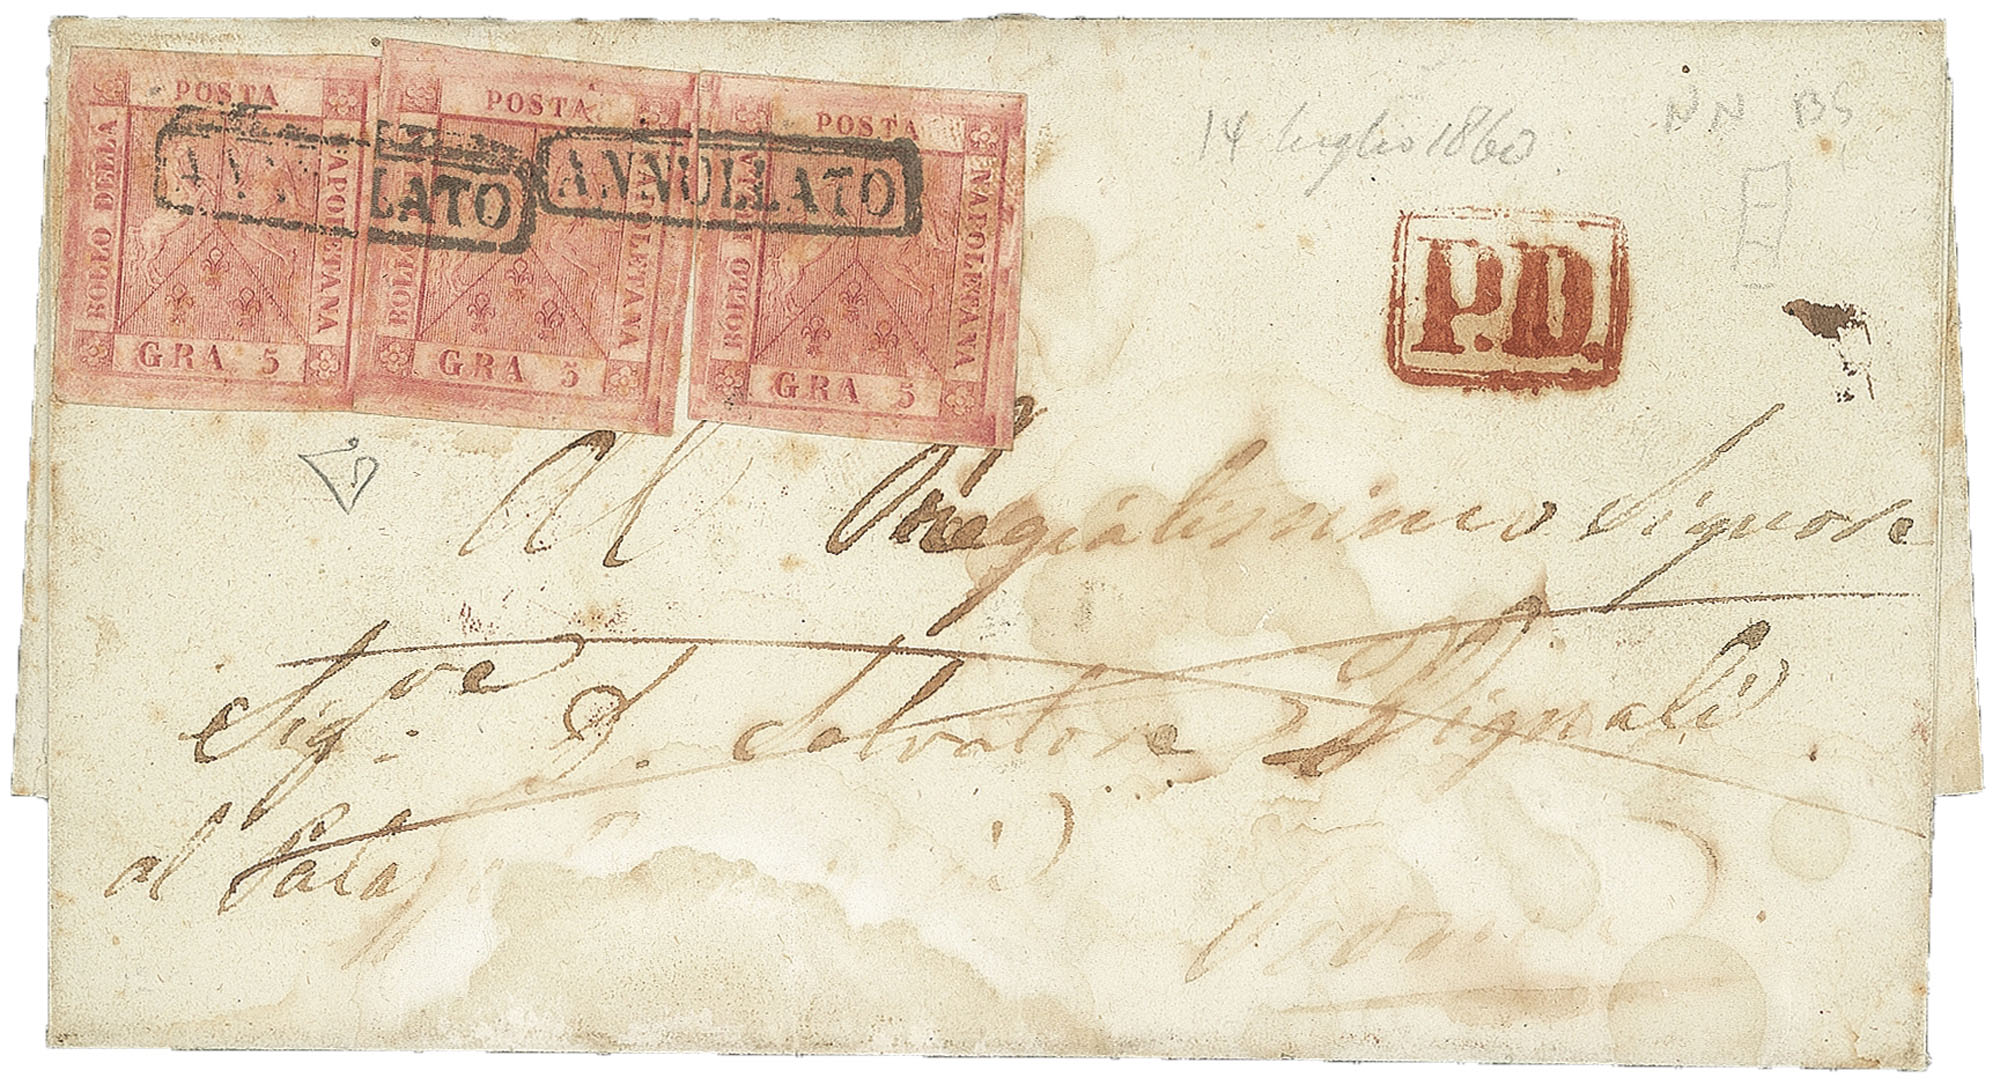 POSTA
BOLLO DELLA
NAPOLETANA
GRA 5
POSTA
BOLLO DELLA
NAPOLETANA
GRA 5
POSTA
BOLLO DELLA
NAPOLETANA
GRA 5
ANNULLATO
ANNULLATO
14 luglio 1860
N N BS
P.D.
Al Pregiatissimo Signore
Sigre D. Salvatore
al